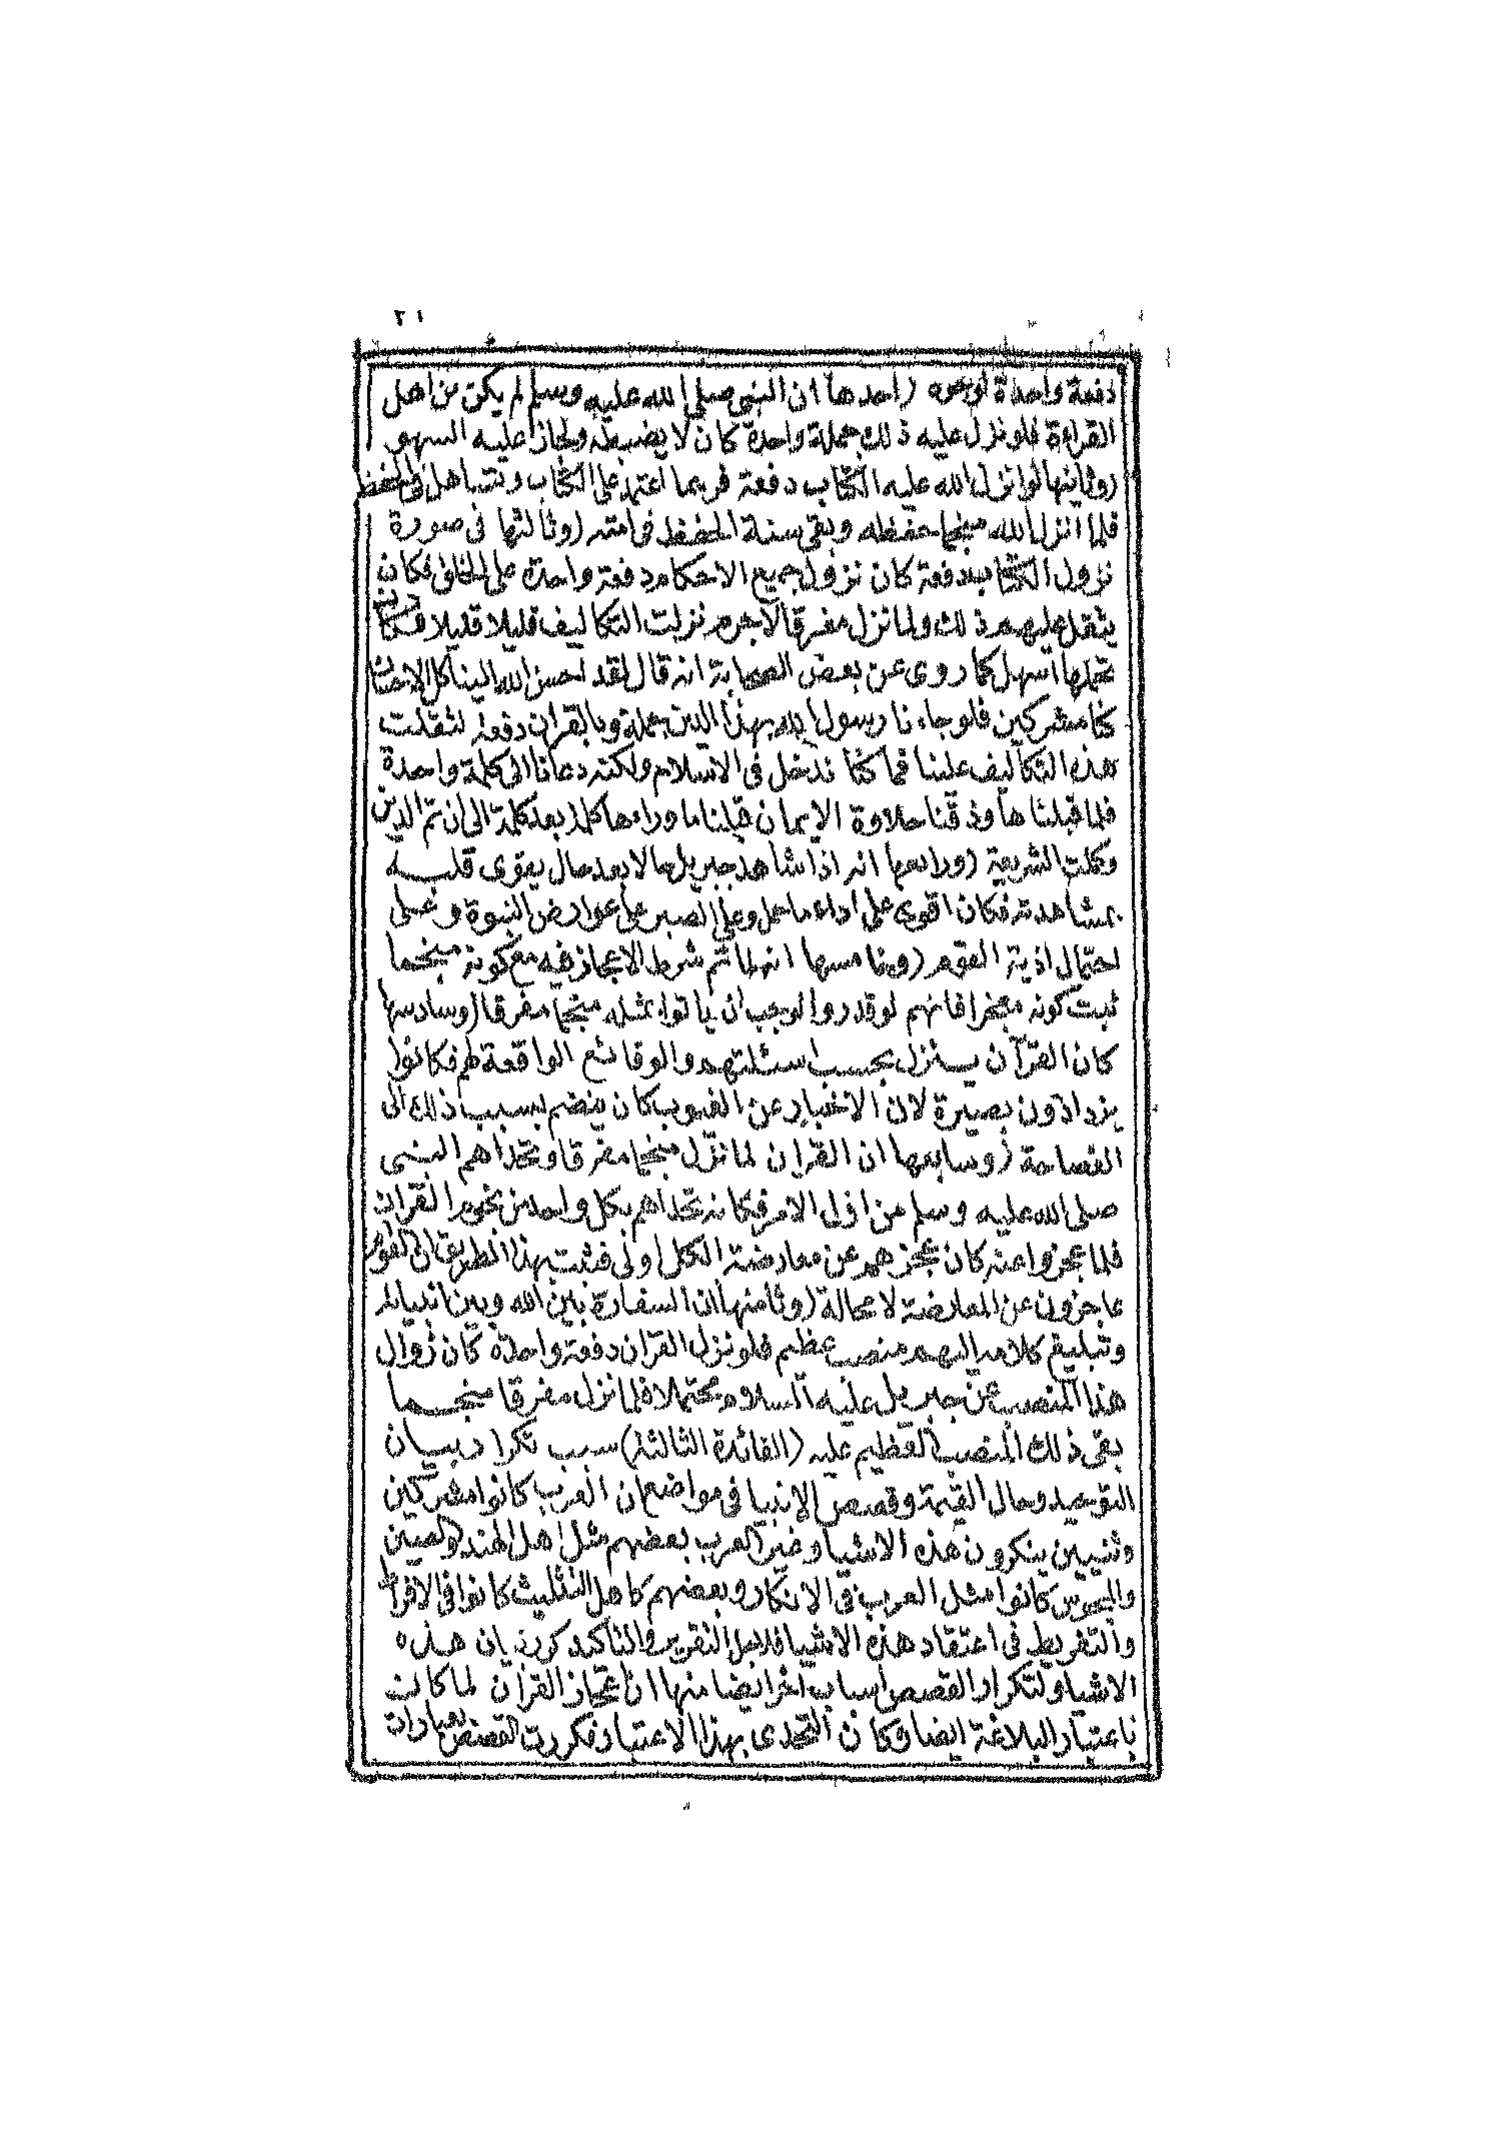 ٢١
دفعة واحدة لوجوه (احدها ان النبى صلى الله عليه وسلم لم يكن من اهل
القراءة فلو نزل عليه ذلك جملة واحدة كان لا يضبطه ولجاز عليه السهو
(وثانيها لو انزل الله عليه الكتاب دفعة فربما اعتمد على الكتاب وتساهل فى الحفظ
فلما انزل الله منجما حفظه وبقى سنة الحفظ فى امته (وثالثها فى صورة
نزول الكتاب دفعة كان نزول جميع الاحكام دفعة واحدة على الخلق فكان
يثقل عليهم ذلك ولما نزل مفرقا لاجرم نزلت التكاليف قليلا قليلا فكان
تحملها اسهل كما روى عن بعض الصحابة انه قال لقد احسن الله الينا كل الاحسان
كنا مشركين فلو جاءنا رسول الله بهذا الدين جملة وبالقران دفعة لثقلت
هذه التكاليف علينا فما كنا ندخل فى الاسلام ولكنه دعانا الى كلمة واحدة
فلما قبلناها وذقنا حلاوة الايمان قبلنا ما وراءها كلمة بعد كلمة الى ان تم الدين
وكملت الشريعة (ورابعها انه اذا شاهد جبريل حالا بعد حال يقوى قلبه
بمشاهدته فكان اقوى على اداء ما حمل وعلى الصبر على عوارض النبوة وعلى
احتمال اذية القوم (وخامسها انه لما تم شرط الاعجاز فيه مع كونه منجما
ثبت كونه معجزا فانهم لو قدروا لوجب ان ياتوا بمثله منجما مفرقا (وسادسها
كان القرآن ينزل بحسب اسئلتهم والوقائع الواقعة لهم فكانوا
يزدادون بصيرة لان الاخبار عن الغيوب كان ينضم بسبب ذلك الى
الفصاحة (وسابعها ان القران لما نزل منجما مفرقا وتحداهم النبى
صلى الله عليه وسلم من اول الامر فكانه تحداهم بكل واحد من نجوم القران
فلما عجزوا عنه كان عجزهم عن معارضة الكل اولى فثبت بهذا الطريق ان القوم
عاجزون عن المعارضة لا محالة (وثامنها ان السفارة بين الله وبين انبيائه
وتبليغ كلامه اليهم منصب عظيم فلو نزل القران دفعة واحدة كان زوال
هذا المنصب عن جبريل عليه السلام محتملا فلما نزل مفرقا منجما
بقى ذلك المنصب العظيم عليه (الفائدة الثالثة) سبب تكرار بيان
التوحيد وحال القيمة وقصص الانبيا فى مواضع ان العرب كانوا مشركين
وثنيين ينكرون هذه الاشيا وغير العرب بعضهم مثل اهل الهند والصين
والمجوس كانوا مثل العرب فى الانكار وبعضهم كاهل التثليث كانوا فى الافراط
والتفريط فى اعتقاد هذه الاشيا فلاجل التقرير والتاكيد كرر بيان هذه
الاشيا ولتكرار القصص اسباب اخر ايضا منها ان اعجاز القران لما كان
باعتبار البلاغة ايضا وكان التحدى بهذا الاعتبار فكررت القصص بعبارات